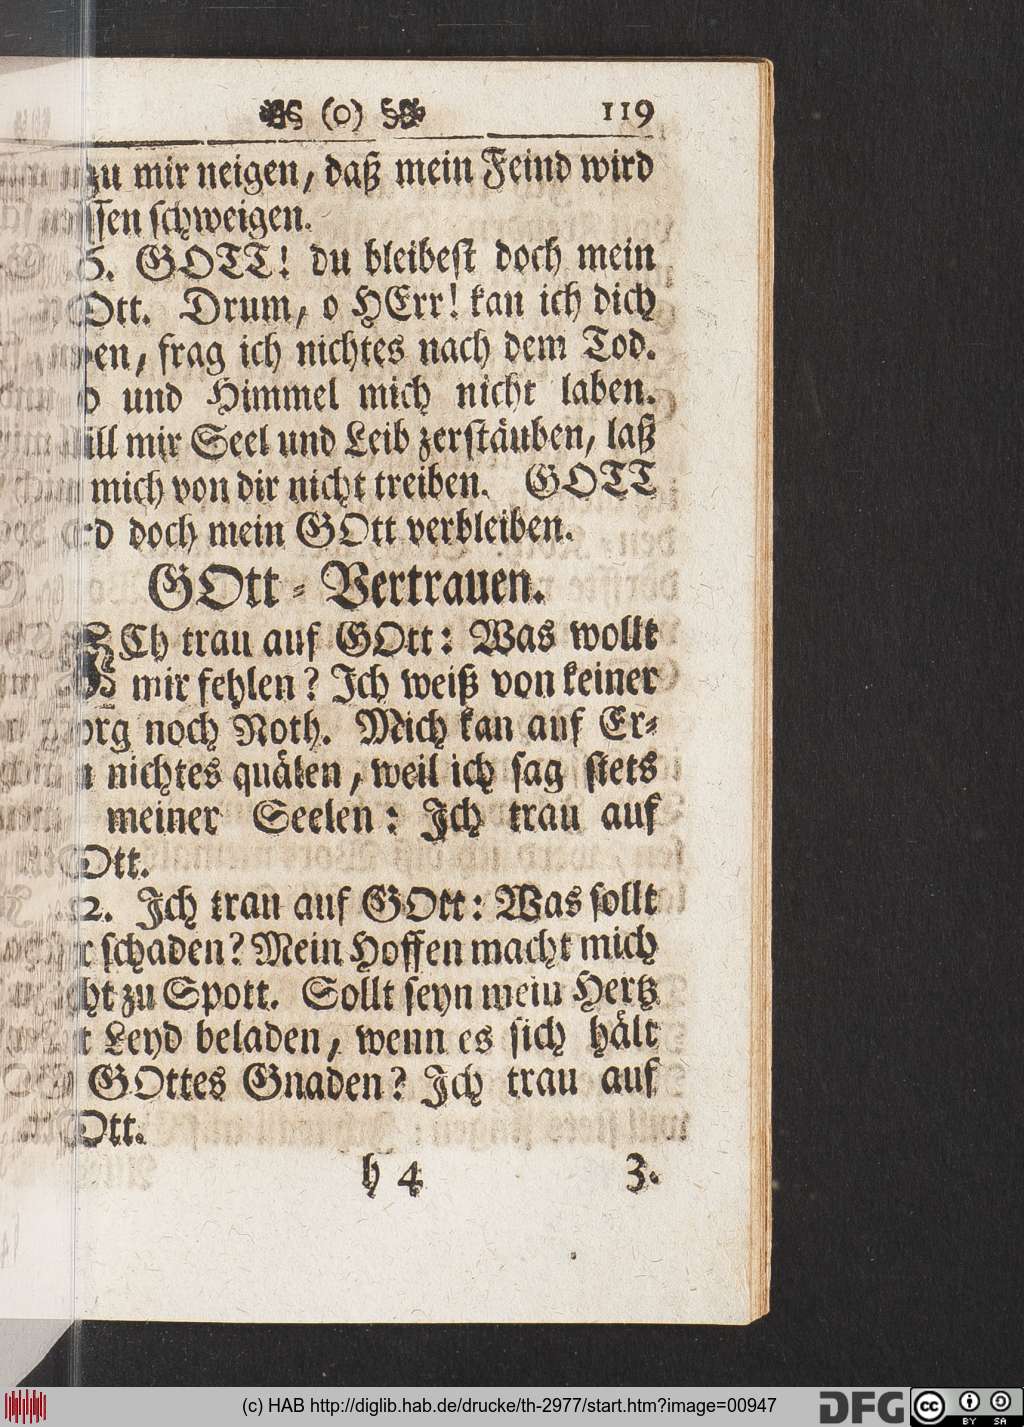 (o) 119
zu mir neigen, daß mein Feind wird
schweigen.
GOTT! du bleibest doch mein
Drum, o HErr! kan ich dich
frag ich nichtes nach dem Tod.
und Himmel mich nicht laben.
mir Seel und Leib zerstäuben, laß
mich von dir nicht treiben. GOTT
doch mein GOtt verbleiben.
GOtt-Vertrauen.
ICh trau auf GOtt: Was wollt
mir fehlen? Ich weiß von keiner
noch Noth. Mich kan auf Er-
nichtes quälen, weil ich sag stets
meiner Seelen: Ich trau auf
GOtt.
2. Ich trau auf GOtt: Was sollt
schaden? Mein Hoffen macht mich
zu Spott. Sollt seyn mein Hertz
Leyd beladen, wenn es sich hält
GOttes Gnaden? Ich trau auf
GOtt.
h 4 3.
(c) HAB http://diglib.hab.de/drucke/th-2977/start.htm?image=00947
DFG
cc BY SA